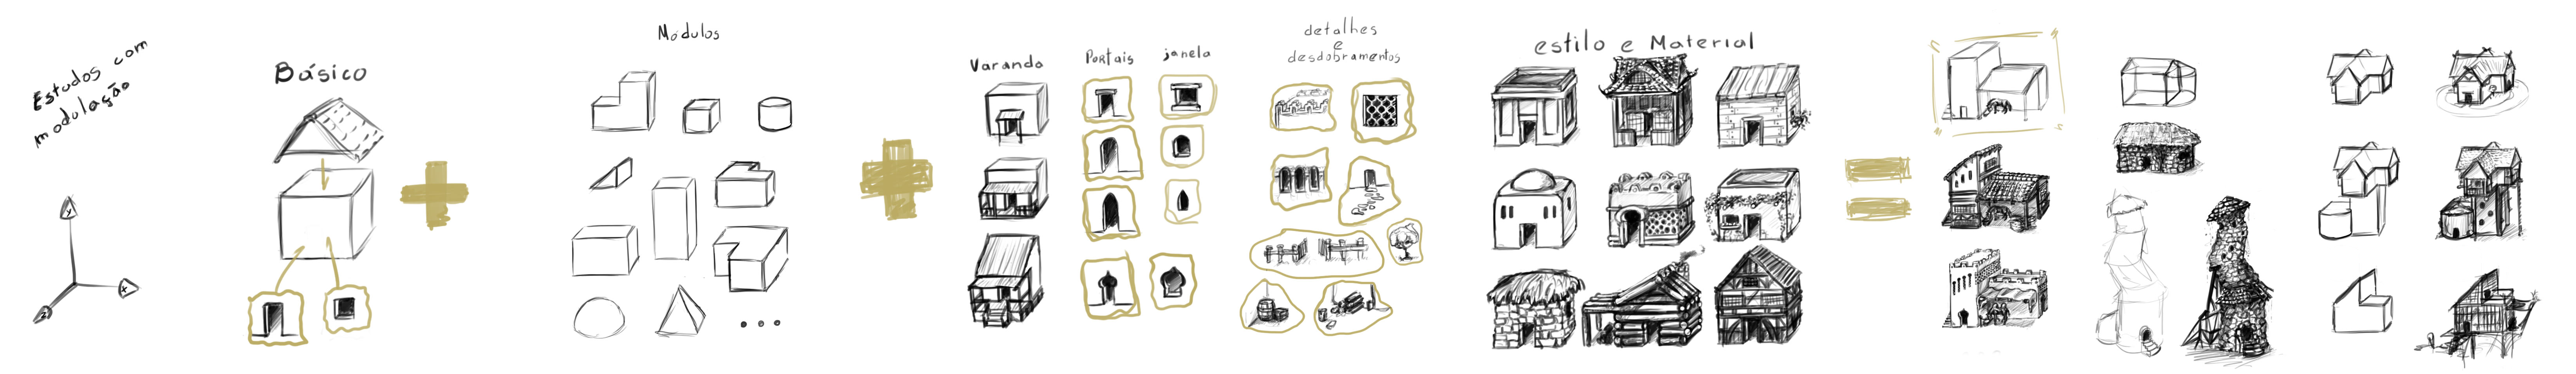 Estudos com
modulação
Y
X
Z
Básico
Módulos
Varanda
Portais
janela
detalhes
e
desdobramentos
estilo e Material